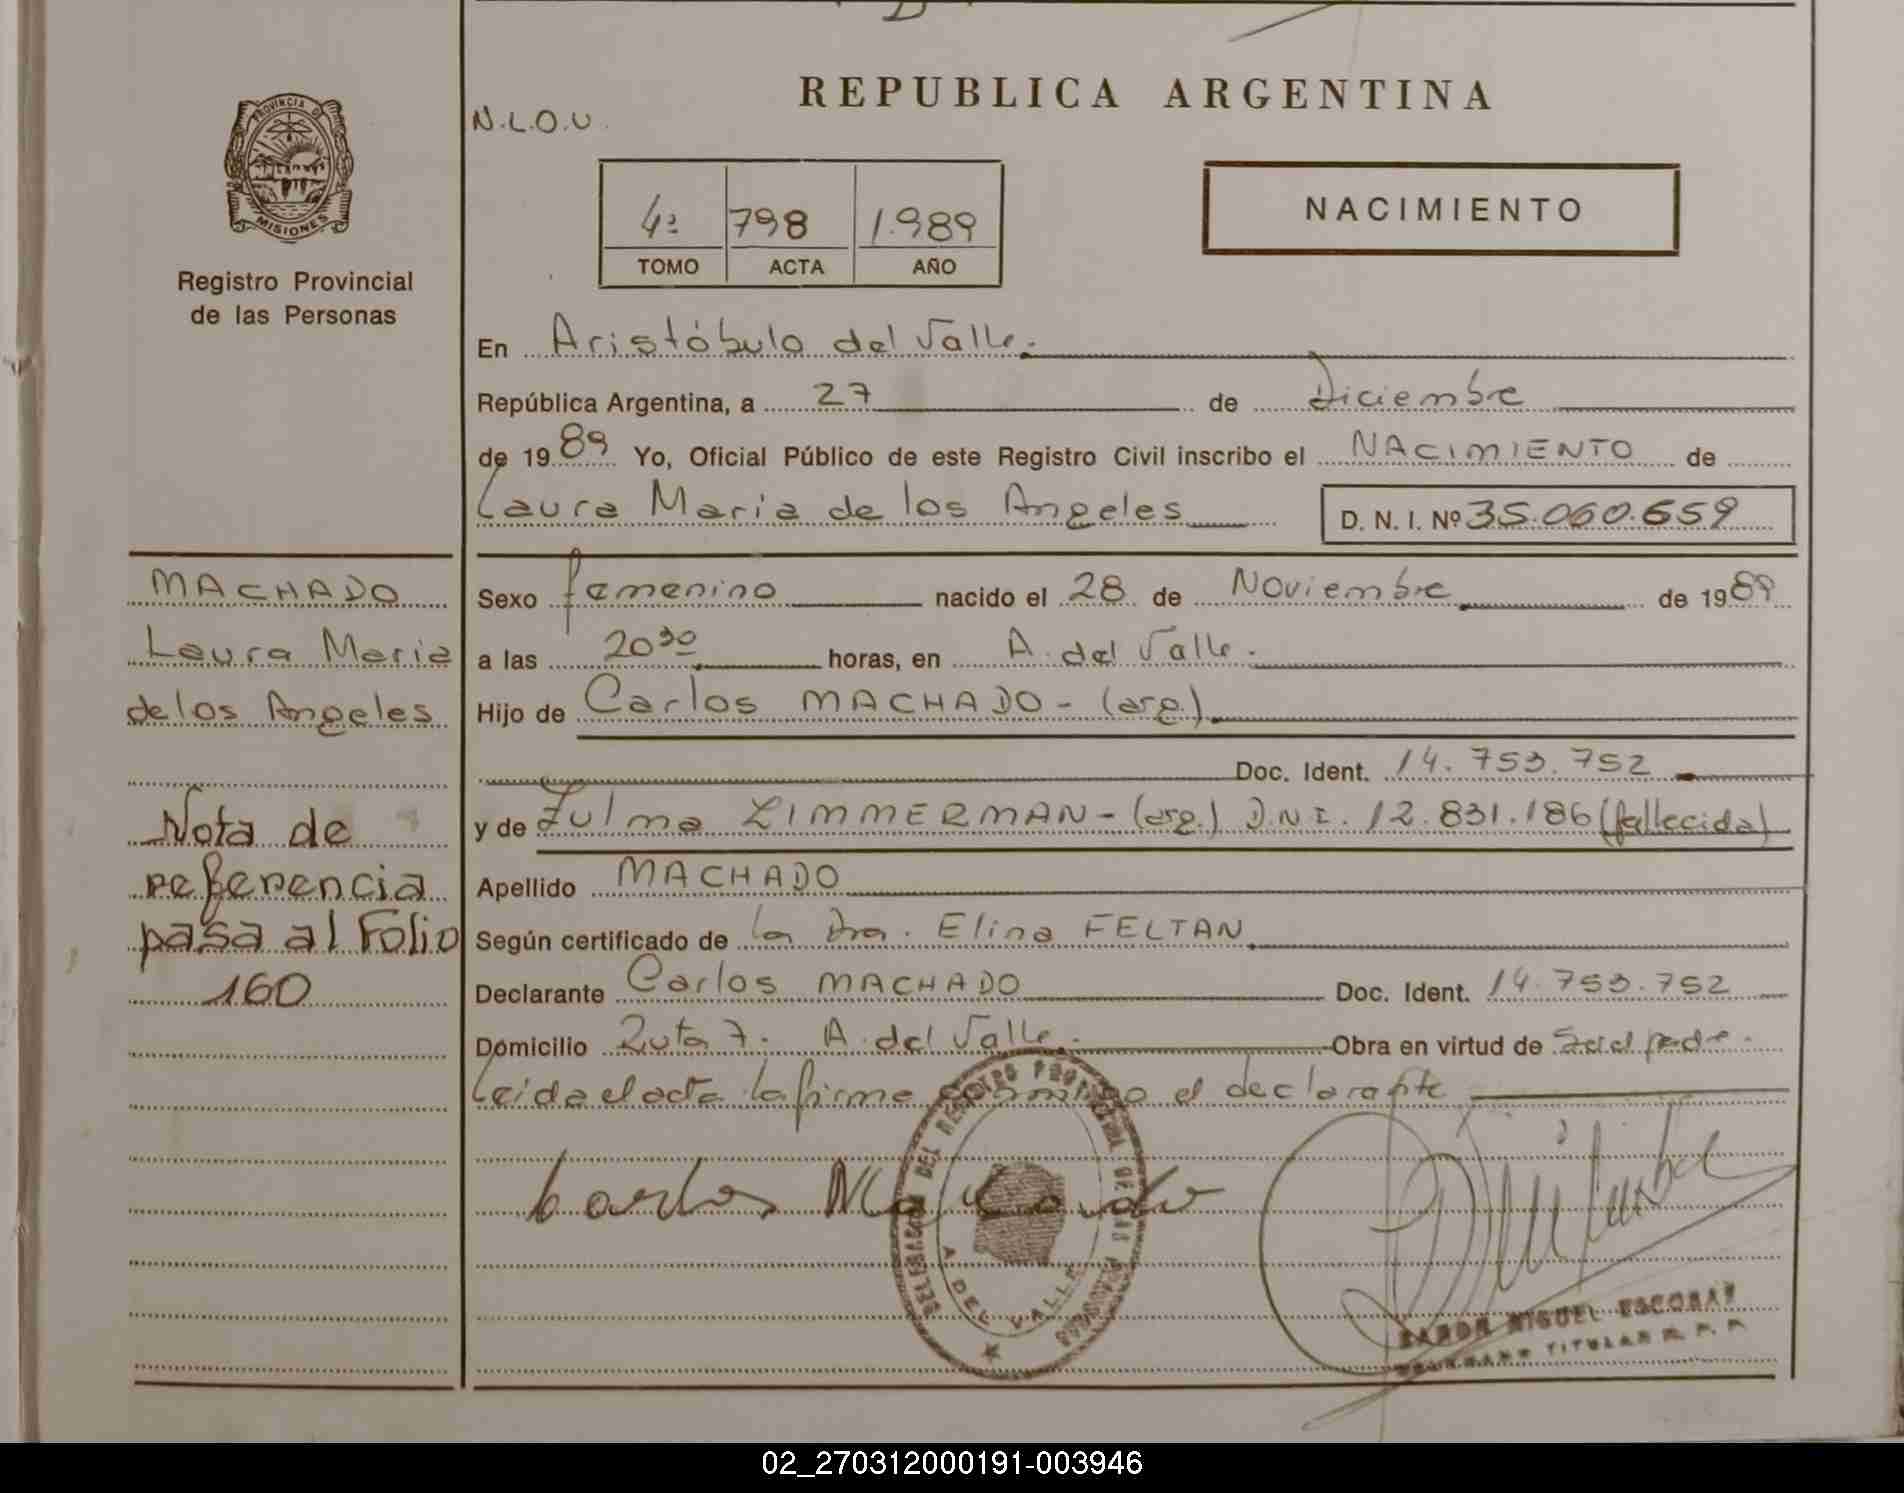 REPUBLICA ARGENTINA
N.L.O.U.
PROVINCIA DE
MISIONES
Registro Provincial
de las Personas
4ª 798 1.989
TOMO ACTA AÑO
NACIMIENTO
En Aristóbulo del Valle.
República Argentina, a 27 de Diciembre
de 1989 Yo, Oficial Público de este Registro Civil inscribo el NACIMIENTO de
Laura Maria de los Angeles D. N. I. Nº 35.060.659
MACHADO
Laura Maria
de los Angeles
Nota de
referencia
pasa al Folio
160
Sexo femenino nacido el 28 de Noviembre de 1989
a las 20³⁰ horas, en A. del Valle.
Hijo de Carlos MACHADO - (arg.)
Doc. Ident. 14.753.752
y de Zulma ZIMMERMAN - (arg.) D.N.I. 12.831.186 (fallecida)
Apellido MACHADO
Según certificado de la Dra. Elina FELTAN
Declarante Carlos MACHADO Doc. Ident. 14.753.752
Domicilio Ruta 7. A. del Valle. Obra en virtud de
Leida el acta la firma conmigo el declarante
Carlos Machado
DELEGACION DEL REGISTRO PROVINCIAL DE LAS PERSONAS
A. DEL VALLE
RAMON MIGUEL ESCOBAR
TITULAR R. P. P.
02_270312000191-003946